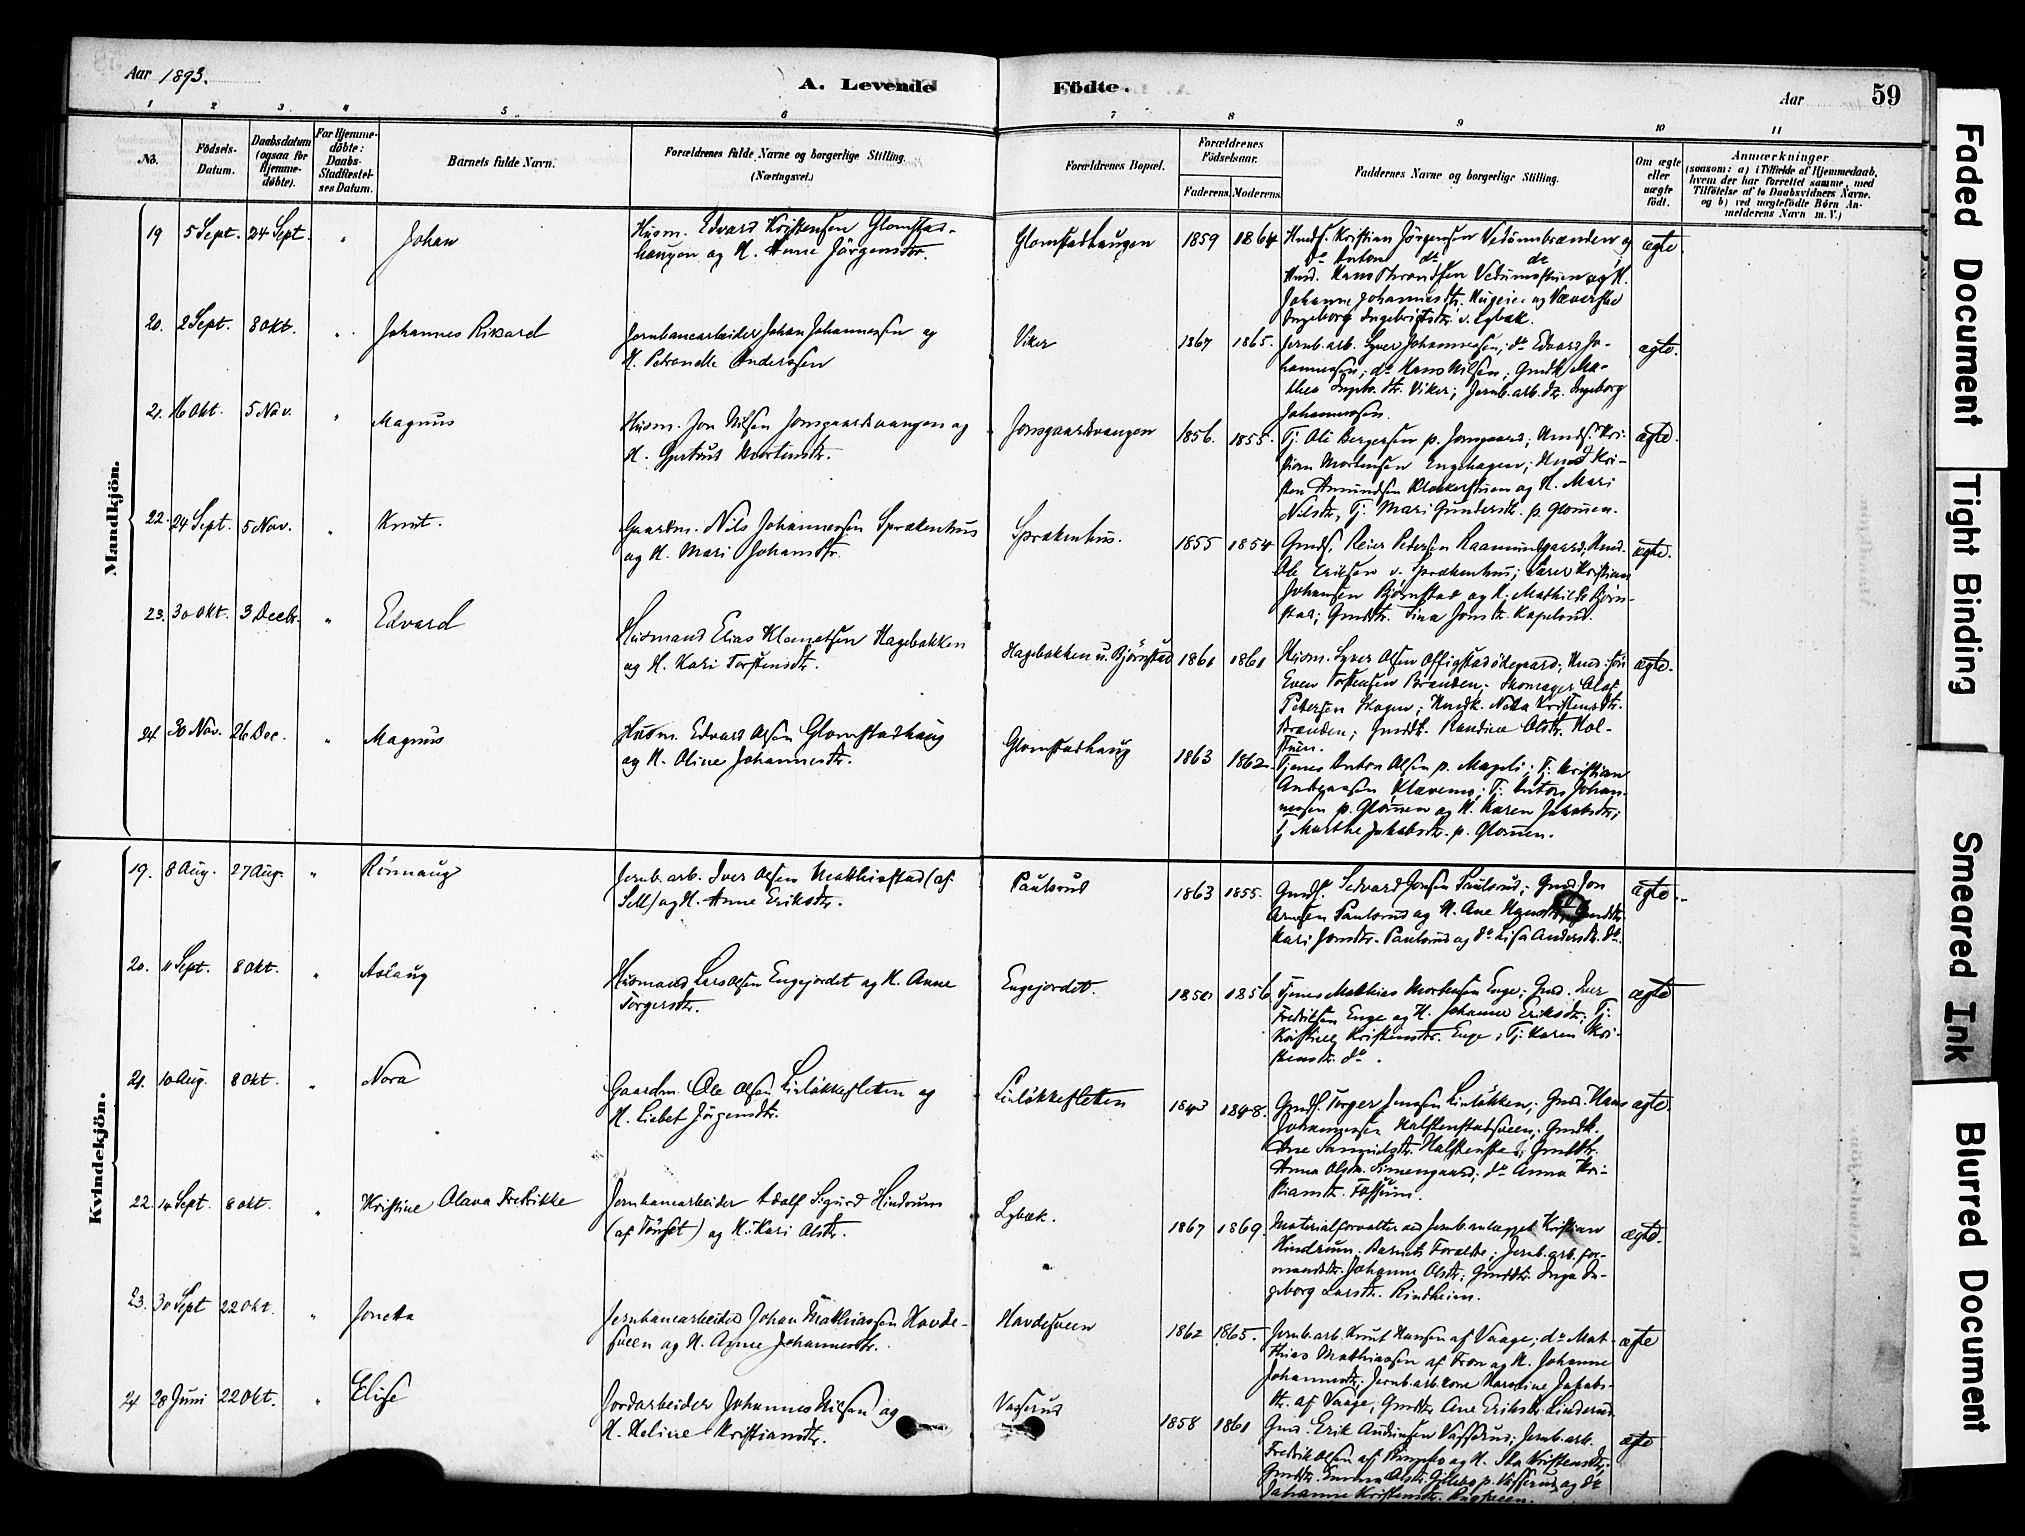 Aar 1893.
A. Levende Födte.
Aar
59
1 2 3 4 5 6 7 8 9 10 11
No.
Födsels-Datum.
Daabsdatum (ogsaa for Hjemme-döbte).
For Hjemme-döbte: Daabs-Stadfæstel-ses Datum.
Barnets fulde Navn.
Forældrenes fulde Navne og borgerlige Stilling.
(Næringsvei.)
Forældrenes Bopæl.
Forældrenes Födselsaar.
Faderens. Moderens.
Faddernes Navne og borgerlige Stilling.
Om ægte eller uægte födt.
Anmærkninger
(saasom: a) i Tilfælde af Hjemmedaab,
hvem der har forrettet samme, med
Tilföielse af to Daabsvidners Navne.
og b) ved uægtefödte Börn An-
melderens Navn m. V.)
Mandkjön.
19 5 Sept. 24 Sept. " Johan
Husm. Edvard Kristensen Glomstad-
haugen og H. Anne Jörgensdtr.
Glomstadhaugen 1859 1864
Kristian Jörgensen
do Anton do do
Johanne Johannesdtr.
Ingeborg Ingebrigtsdtr. v. Lybæk.
ægte.
20. 2 Sept. 8 Okt. " Johannes Rikard
Jernbanearbeider Johan Johannessen og
H. Petronelle Anderssen
Viker 1867 1865.
Jernb.arb. Syver Johannessen; do Edvard Jo-
hannessen; do Hans Nilsen; Gmdk. Ma-
thea Viker; Jernb.arb.dtr. Ingeborg
Johannessen.
ægte.
21. 16 Okt. 5 Nov. " Magnus
Husm. Jon Nilsen Jonsgaardsvangen og
H. Gjertrud Mortensdtr.
Jonsgaardsvangen 1856. 1855.
Tj. Ole Bergersen p. Jonsgaard; Kri-
stian Mortensen Engehagen; Kri-
sten Amundsen Klokkerstuen og H. Mari
Nilsdtr, Tj. Mari Gundersdtr. p. Glomen.
ægte.
22. 24 Sept. 5 Nov. " Knut.
Gaardm. Nils Johannessen Sprækenhus
og H. Mari Johansdtr.
Sprækenhus. 1855 1854
Gmds. Reier Pedersen Raamundgaard;
Ole Eriksen v. Sprækenhus; Lærer Kristian
Johansen Björnstad og H. Mathilde Björn-
stad; Gmddtr. Lina Jonsdtr. Kapelrud.
ægte.
23. 30 Okt. 3 Decbr. " Edvard
Husmand Elias Klemetsen Hagebakken
og H. Kari Torstensdtr.
Hagebakken u. Björnstad 1861 1861
Husm. Syver Olsen Offigstadödegaard;
Even Torstensen Brænden; Skomager Olaf
Petersen Skogen; Kristensdtr.
Brænden; Gmddtr. Randine Olsdtr. Hol-
stuen.
ægte.
24. 30 Nov. 26 Dec. " Magnus
Husm. Edvard Olsen Glomstadhaug
og H. Oline Johannesdtr.
Glomstadhaug 1863 1862.
Tjener Anton Olsen p. Mageli; Tj. Kristian
Andreassen Klævemo; Tj. Anton Johan-
nessen p. Glomen og H. Karen Jakobsdtr;
Tj. Marthe Jakobsdtr. p. Glomen.
Kvindekjön.
19. 8 Aug. 27 Aug. " Rönnaug
Jernb.arb. Iver Olsen Mathisstad (af
Sell) og H. Anne Eriksdtr.
Paulsrud 1863 1855.
Gmds. Sedvard Jonsen Paulsrud; Gmd. Jon
Arnesen Paulsrud og H. Ane
Kari Jonsdtr. Paulsrud og do Lisa Andersdtr. do.
ægte.
20. 11 Sept. 8 Okt. " Aslaug
Husmand Lars Olsen Engejordet og H. Anne
Torgersdtr.
Engejordet. 1850 1856
Tjener Mathias Mortensen Enge; Gmd. Iver
Fredriksen Enge og H. Johanne Eriksdtr; Tj.
Kristine Kristensdtr. Enge; Tj. Karen Kri-
stensdtr. do.
ægte
21. 10 Aug. 8 Okt. " Nora
Gaardm. Ole Olsen Linlökkesletten og
H. Liebet Jörgensdtr.
Linlökkesletten 1843 1848.
Gmds. Torger Jensen Linlökken; Gmd. Hans
Johannessen Halstenstadsveen; Gmdk.
Ane Halstenstad; Gmddtr.
Anna Olsdtr. Simengaard; do Anna Kri-
stiansdtr. Fossum.
ægte.
22. 14 Sept. 8 Okt. " Kristine Olava Fredrikke
Jernbanearbeider Adolf Sigurd Hindrum
(af Tönset) og H. Kari Olsdtr.
Lybæk. 1867 1869.
Materialforvalter ved Jernb.anlægget Kristian
Hindrum, Barnets Forældre; Jernb.arb.for-
mandsdtr. Johanne Olsdtr; Gmddtr. Inga In-
geborg Larsdtr. Rindheim.
ægte.
23. 30 Sept 22 Okt. " Jonetta
Jernbanearbeider Johan Mathiassen Havde-
sveen og H. Agnes Johannesdtr.
Havdesveen 1862 1865.
Jernb.arb. Knut Hansen af Vaage; do Mat-
thias Mathiassen af Fron og H. Johanne
Johannesdtr; Jernb.arb.kone Karoline Jakobs-
dtr. af Vaage, Gmddtr. Ane Eriksdtr. Linderud
ægte
24 28 Juni 22 Okt. " Elise
Jordarbeider Johannes Nilsen og
H. Heline Kristiansdtr.
Vasrud 1858 1861
Gmd. Erik Andersen Vasrud; Jernb.arb.
Fredrik Olsen af og H. Kristensdtr.
Gmddtr. Emma Olsdtr. p. Vasrud og do
Johanne Kristensdtr.
ægte
Faded Document
Tight Binding
Smeared Ink
Blurred Document